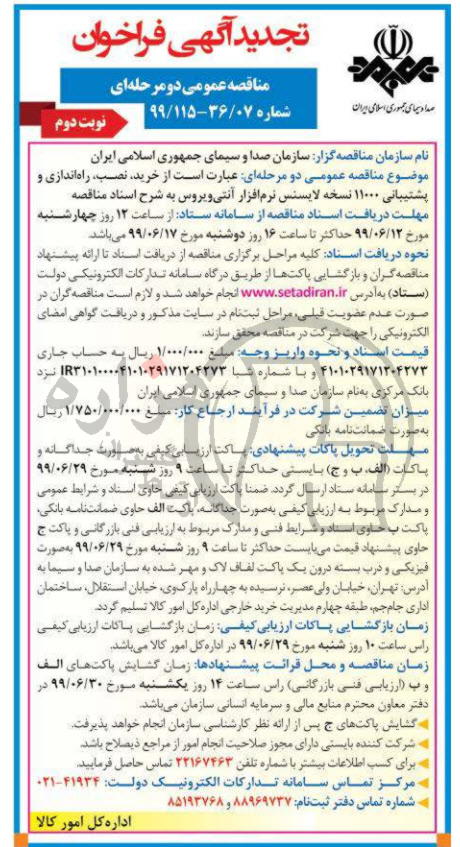 تجدید آگهی فراخوان
مناقصه عمومی دو مرحله‌ای
شماره ۹۹/۱۱۵-۳۶/۰۷
نوبت دوم
صدا و سیمای جمهوری اسلامی ایران
نام سازمان مناقصه‌گزار: سازمان صدا و سیمای جمهوری اسلامی ایران
موضوع مناقصه عمومی دو مرحله‌ای: عبارت است از خرید، نصب، راه‌اندازی و
پشتیبانی ۱۱۰۰۰ نسخه لایسنس نرم‌افزار آنتی‌ویروس به شرح اسناد مناقصه
مهلت دریافت اسناد مناقصه از سامانه ستاد: از ساعت ۱۲ روز چهارشنبه
مورخ ۹۹/۰۶/۱۲ حداکثر تا ساعت ۱۶ روز دوشنبه مورخ ۹۹/۰۶/۱۷ می‌باشد.
نحوه دریافت اسناد: کلیه مراحل برگزاری مناقصه از دریافت اسناد تا ارائه پیشنهاد
مناقصه‌گران و بازگشایی پاکت‌ها از طریق درگاه سامانه تدارکات الکترونیکی دولت
(ستاد) به‌آدرس www.setadiran.ir انجام خواهد شد و لازم است مناقصه‌گران در
صورت عدم عضویت قبلی، مراحل ثبت‌نام در سایت مذکور و دریافت گواهی امضای
الکترونیکی را جهت شرکت در مناقصه محقق سازند.
قیمت اسناد و نحوه واریز وجه: مبلغ ۱/۰۰۰/۰۰۰ ریال به حساب جاری
۴۱۰۱۰۲۹۱۷۱۲۰۴۲۷۳ و با شماره شبا IR۳۱۰۱۰۰۰۰۴۱۰۱۰۲۹۱۷۱۲۰۴۲۷۳ نزد
بانک مرکزی به‌نام سازمان صدا و سیمای جمهوری اسلامی ایران
میزان تضمین شرکت در فرآیند ارجاع کار: مبلغ ۱/۷۵۰/۰۰۰/۰۰۰ ریال
به‌صورت ضمانت‌نامه بانکی
مهلت تحویل پاکات پیشنهادی: پاکت ارزیابی کیفی به‌صورت جداگانه و
پاکات (الف، ب و ج) بایستی حداکثر تا ساعت ۹ روز شنبه مورخ ۹۹/۰۶/۲۹
در بستر سامانه ستاد ارسال گردد. ضمنا پاکت ارزیابی کیفی حاوی اسناد و شرایط عمومی
و مدارک مربوط به ارزیابی کیفی به‌صورت جداگانه، پاکت الف حاوی ضمانت‌نامه بانکی،
پاکت ب حاوی اسناد و شرایط فنی و مدارک مربوط به ارزیابی فنی بازرگانی و پاکت ج
حاوی پیشنهاد قیمت می‌بایست حداکثر تا ساعت ۹ روز شنبه مورخ ۹۹/۰۶/۲۹ به‌صورت
فیزیکی و درب بسته درون یک پاکت لفاف لاک و مهر شده به سازمان صدا و سیما به
آدرس: تهران، خیابان ولی‌عصر، نرسیده به چهارراه پارک‌وی، خیابان استقلال، ساختمان
اداری جام‌جم، طبقه چهارم مدیریت خرید خارجی اداره کل امور کالا تسلیم گردد.
زمان بازگشایی پاکات ارزیابی کیفی: زمان بازگشایی پاکات ارزیابی کیفی
راس ساعت ۱۰ روز شنبه مورخ ۹۹/۰۶/۲۹ در اداره کل امور کالا می‌باشد.
زمان مناقصه و محل قرائت پیشنهادها: زمان گشایش پاکت‌های الف
و ب (ارزیابی فنی بازرگانی) راس ساعت ۱۴ روز یکشنبه مورخ ۹۹/۰۶/۳۰ در
دفتر معاون محترم منابع مالی و سرمایه انسانی سازمان می‌باشد.
گشایش پاکت‌های ج پس از ارائه نظر کارشناسی سازمان انجام خواهد پذیرفت.
شرکت کننده بایستی دارای مجوز صلاحیت انجام امور از مراجع ذیصلاح باشد.
برای کسب اطلاعات بیشتر با شماره تلفن ۲۲۱۶۷۴۶۳ تماس حاصل فرمایید.
مرکز تماس سامانه تدارکات الکترونیک دولت: ۰۲۱-۴۱۹۳۴
شماره تماس دفتر ثبت‌نام: ۸۸۹۶۹۷۳۷ و ۸۵۱۹۳۷۶۸
اداره کل امور کالا